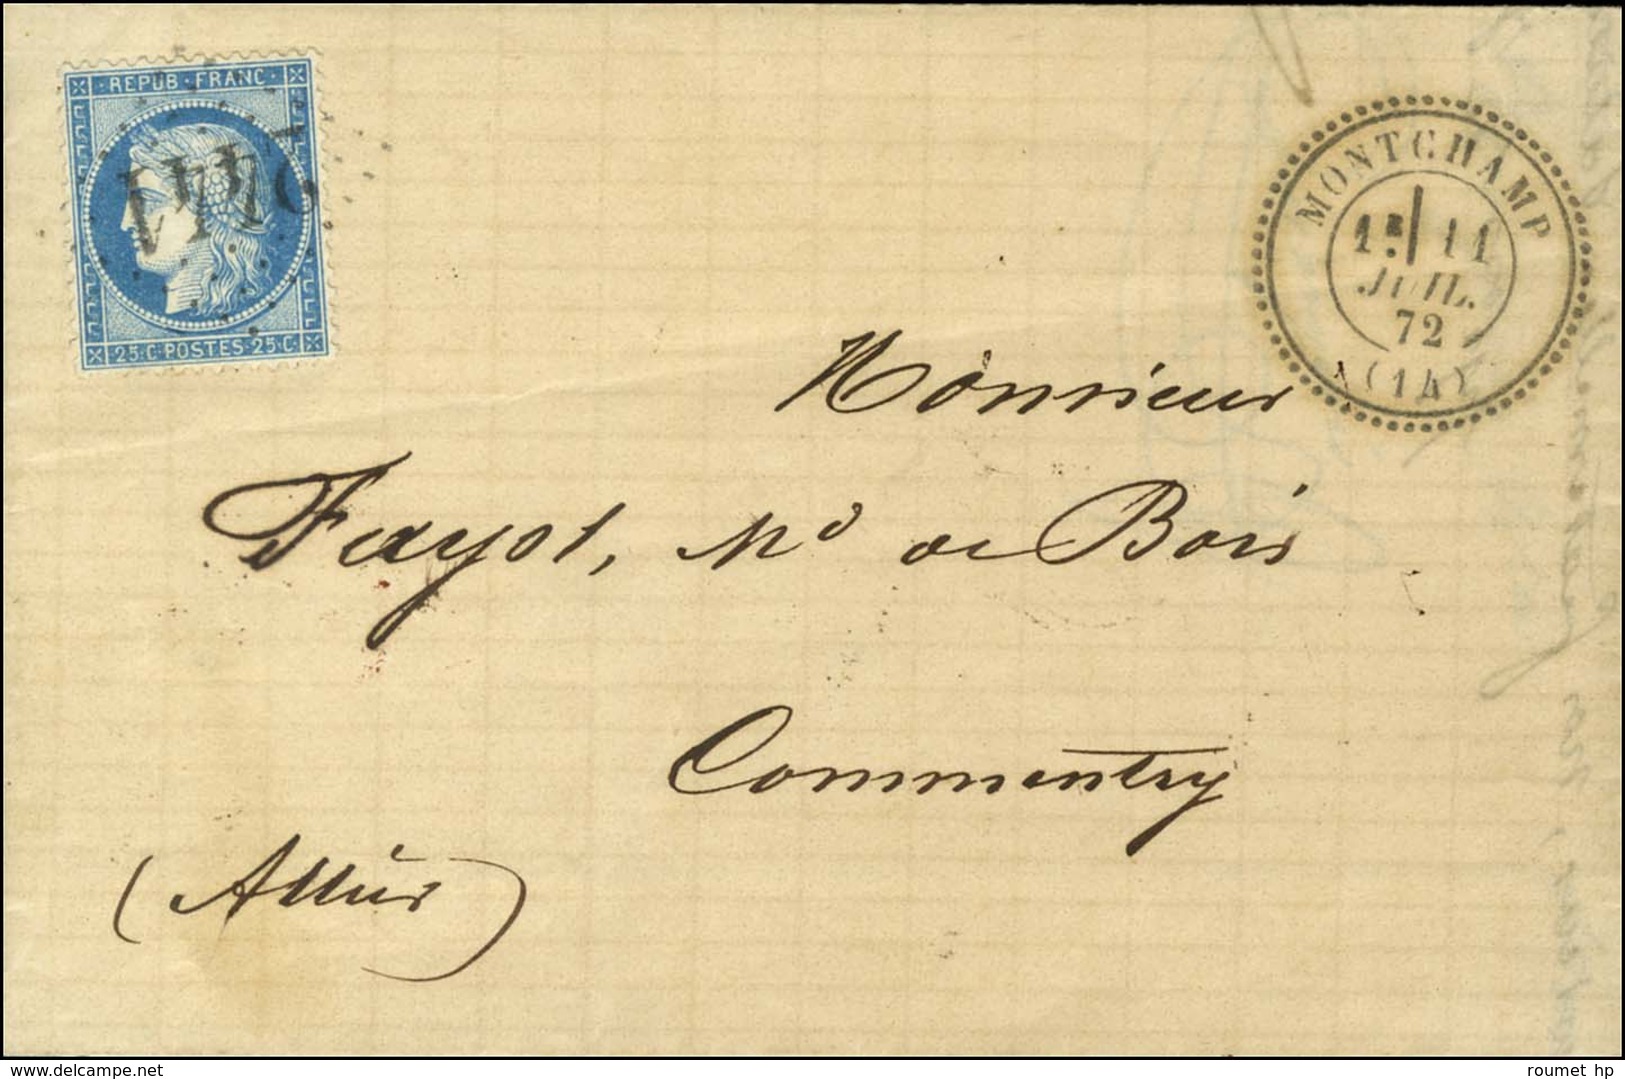 REPUB · FRANC ·
25·C·POSTES·25·C
MONTCHAMP
1E 11
JUIL.
72
(14)
Monsieur
Fayol, Md de Bois
Commentry
(Allier)
roumet hp